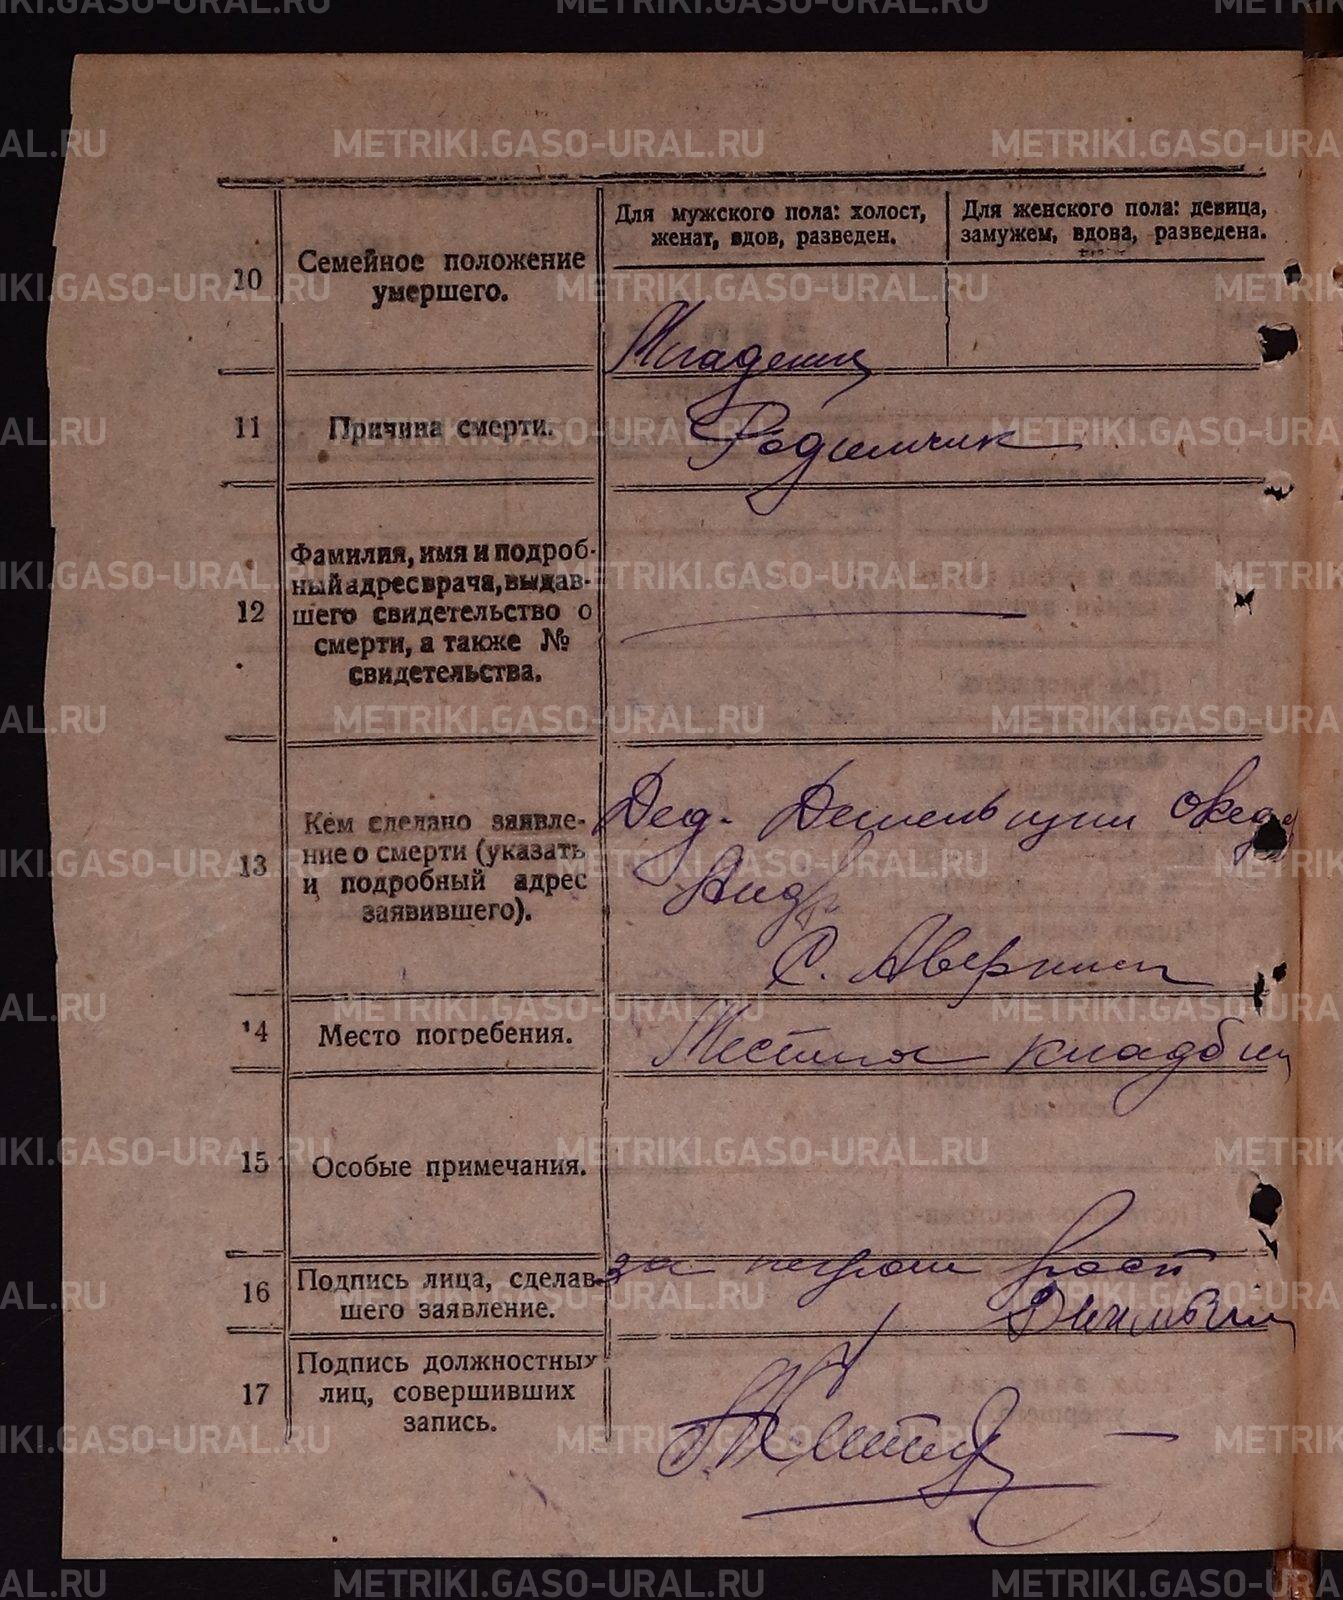 METRIKI.GASO-URAL.RU
10
Семейное положение
умершего.
Для мужского пола: холост,
женат, вдов, разведен.
Для женского пола: девица,
замужем, вдова, разведена.
Младенец
11
Причина смерти.
Родимчик
12
Фамилия, имя и подроб-
ный адрес врача, выдав-
шего свидетельство о
смерти, а также №
свидетельства.
13
Кем сделано заявле-
ние о смерти (указать
и подробный адрес
заявившего).
Дед.
Андр
С. Аверино
14
Место погребения.
Местное кладбищ
15
Особые примечания.
16
Подпись лица, сделав-
шего заявление.
за неграм росп
17
Подпись должностных
лиц, совершивших
запись.